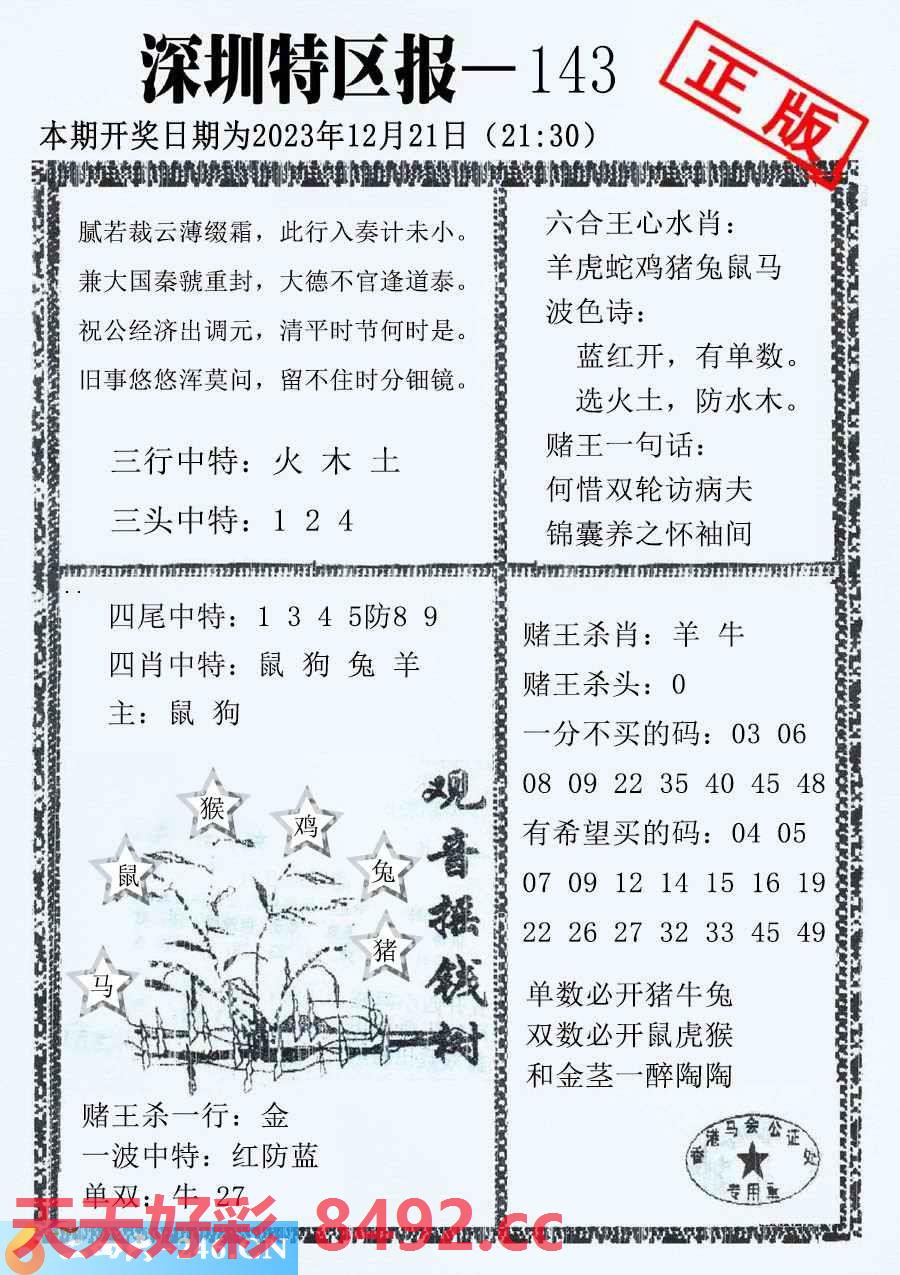 深圳特区报－143
正版
本期开奖日期为2023年12月21日（21:30）
腻若裁云薄缀霜，此行入奏计未小。
兼大国秦虢重封，大德不官逢道泰。
祝公经济出调元，清平时节何时是。
旧事悠悠浑莫问，留不住时分钿镜。
三行中特：火 木 土
三头中特：1 2 4
六合王心水肖：
羊虎蛇鸡猪兔鼠马
波色诗：
蓝红开，有单数。
选火土，防水木。
赌王一句话：
何惜双轮访病夫
锦囊养之怀袖间
四尾中特：1 3 4 5防8 9
四肖中特：鼠 狗 兔 羊
主：鼠 狗
观音摇钱树
猴
鸡
鼠
兔
猪
马
赌王杀一行：金
一波中特：红防蓝
单双：牛 27
赌王杀肖：羊 牛
赌王杀头：0
一分不买的码：03 06
08 09 22 35 40 45 48
有希望买的码：04 05
07 09 12 14 15 16 19
22 26 27 32 33 45 49
单数必开猪牛兔
双数必开鼠虎猴
和金茎一醉陶陶
香港马会公证处
专用章
天天好彩 8492.cc